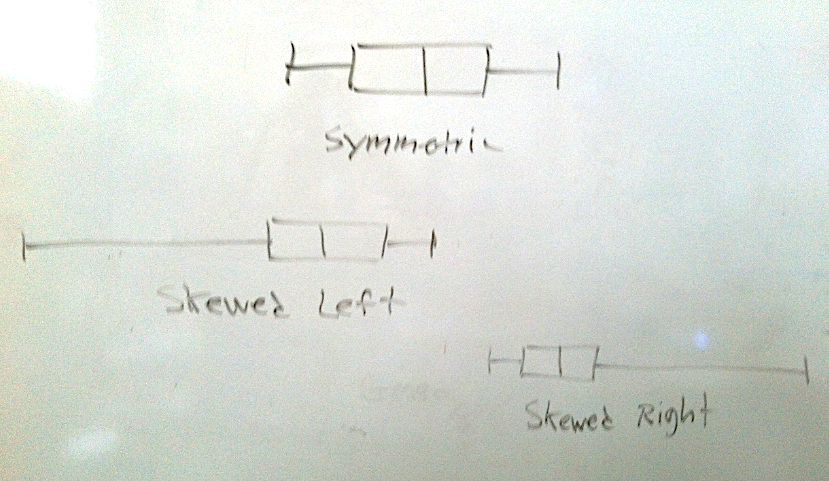 Symmetric
Skewed Left
Skewed Right